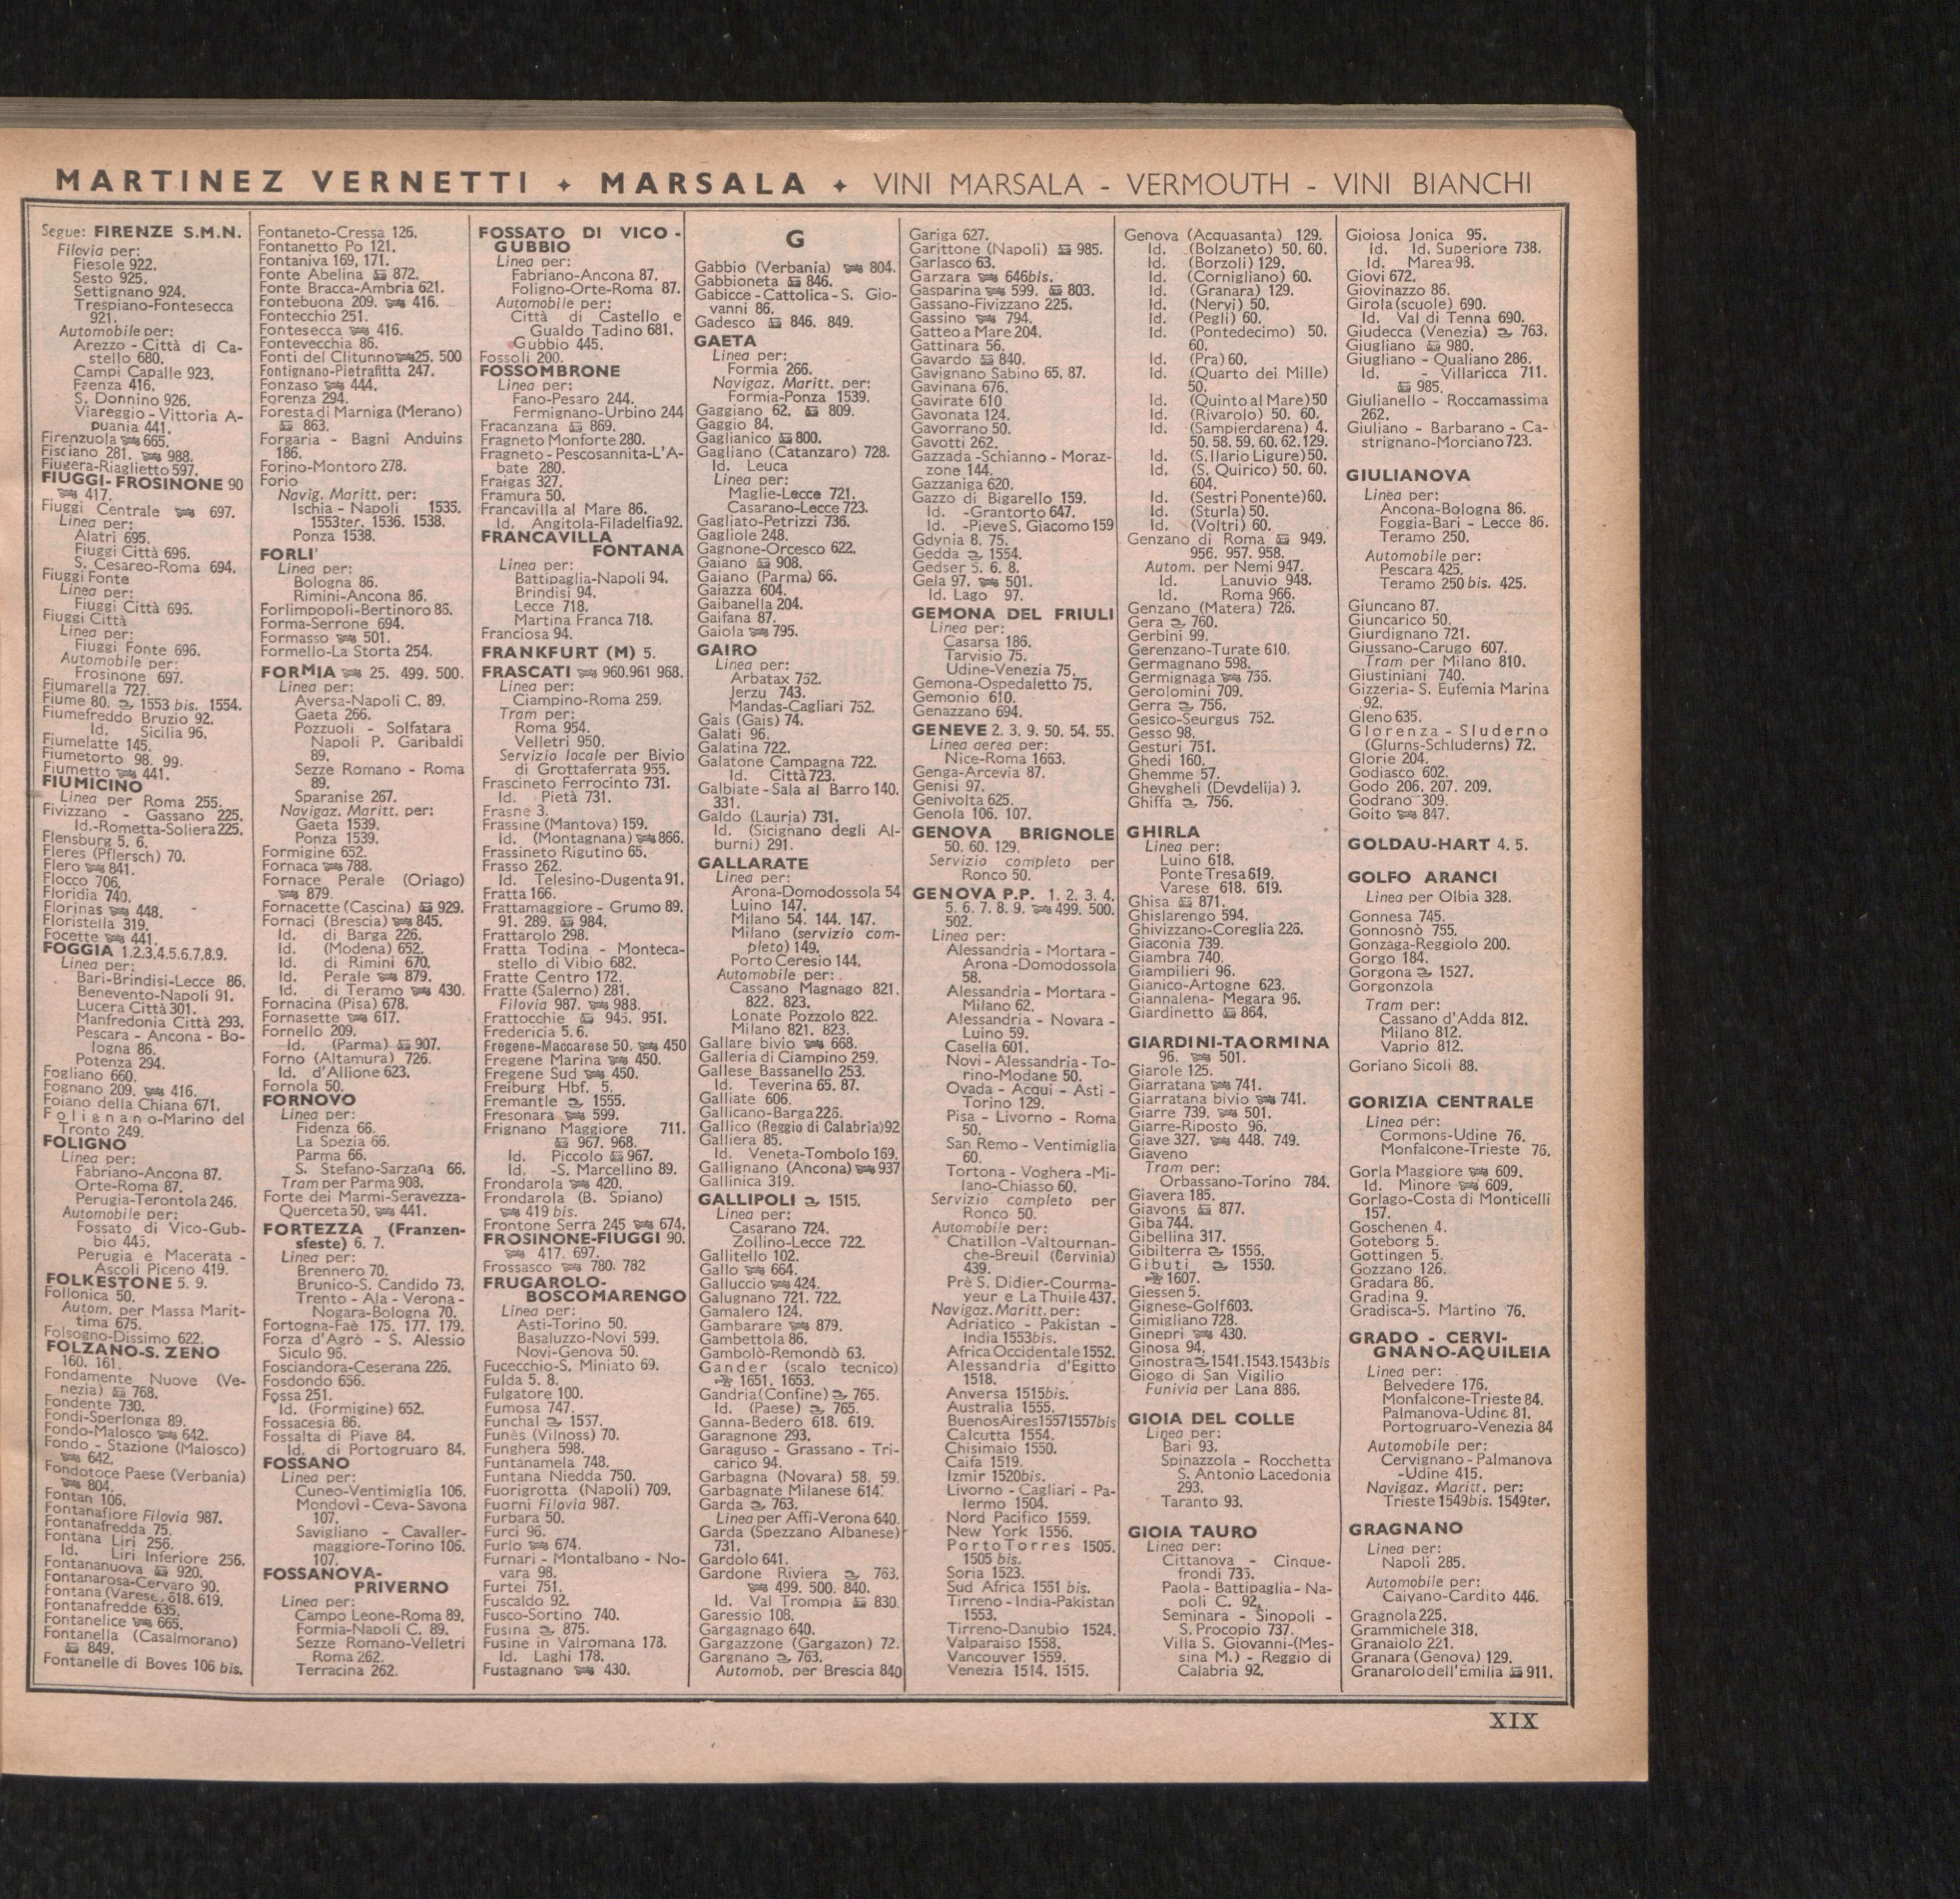 MARTINEZ VERNETTI ✦ MARSALA ✦ VINI MARSALA - VERMOUTH - VINI BIANCHI
Segue: FIRENZE S.M.N.
Filovia per:
Fiesole 922.
Sesto 925.
Settignano 924.
Trespiano-Fontesecca
921.
Automobile per:
Arezzo - Città di Ca-
stello 680.
Campi Capalle 923.
Faenza 416.
S. Donnino 926.
Viareggio - Vittoria A-
puania 441.
Firenzuola 665.
Fisciano 281. 988.
Fiugera-Riaglietto 597.
FIUGGI-FROSINONE 90
417.
Fiuggi Centrale 697.
Linea per:
Alatri 695.
Fiuggi Città 696.
S. Cesareo-Roma 694.
Fiuggi Fonte
Linea per:
Fiuggi Città 696.
Fiuggi Città
Linea per:
Fiuggi Fonte 696.
Automobile per:
Frosinone 697.
Fiumarella 727.
Fiume 80. 1553 bis. 1554.
Fiumefreddo Bruzio 92.
Id. Sicilia 96.
Fiumelatte 145.
Fiumetorto 98. 99.
Fiumetto 441.
FIUMICINO
Linea per Roma 255.
Fivizzano - Gassano 225.
Id.-Rometta-Soliera 225.
Flensburg 5. 6.
Fleres (Pflersch) 70.
Flero 841.
Flocco 706.
Floridia 740.
Florinas 448.
Floristella 319.
Focette 441.
FOGGIA 1.2.3.4.5.6.7.8.9.
Linea per:
Bari-Brindisi-Lecce 86.
Benevento-Napoli 91.
Lucera Città 301.
Manfredonia Città 293.
Pescara - Ancona - Bo-
logna 86.
Potenza 294.
Fogliano 660.
Fognano 209. 416.
Foiano della Chiana 671.
Folignano-Marino del
Tronto 249.
FOLIGNO
Linea per:
Fabriano-Ancona 87.
Orte-Roma 87.
Perugia-Terontola 246.
Automobile per:
Fossato di Vico-Gub-
bio 445.
Perugia e Macerata -
Ascoli Piceno 419.
FOLKESTONE 5. 9.
Follonica 50.
Autom. per Massa Marit-
tima 675.
Folsogno-Dissimo 622.
FOLZANO-S. ZENO
160. 161.
Fondamente Nuove (Ve-
nezia) 768.
Fondente 730.
Fondi-Sperlonga 89.
Fondo-Malosco 642.
Fondo - Stazione (Malosco)
642.
Fondotoce Paese (Verbania)
804.
Fontan 106.
Fontanafiore Filovia 987.
Fontanafredda 75.
Fontana Liri 256.
Id. Liri Inferiore 256.
Fontananuova 920.
Fontanarosa-Cervaro 90.
Fontana (Varese) 618. 619.
Fontanafredde 635.
Fontanelice 665.
Fontanella (Casalmorano)
849.
Fontanelle di Boves 106 bis.
Fontaneto-Cressa 126.
Fontanetto Po 121.
Fontaniva 169, 171.
Fonte Abelina 872.
Fonte Bracca-Ambria 621.
Fontebuona 209. 416.
Fontecchio 251.
Fontesecca 416.
Fontevecchia 86.
Fonti del Clitunno 25. 500
Fontignano-Pietrafitta 247.
Fonzaso 444.
Forenza 294.
Foresta di Marniga (Merano)
863.
Forgaria - Bagni Anduins
186.
Forino-Montoro 278.
Forio
Navig. Maritt. per:
Ischia - Napoli 1535.
1553ter. 1536. 1538.
Ponza 1538.
FORLI'
Linea per:
Bologna 86.
Rimini-Ancona 86.
Forlimpopoli-Bertinoro 86.
Forma-Serrone 694.
Formasso 501.
Formello-La Storta 254.
FORMIA 25. 499. 500.
Linea per:
Aversa-Napoli C. 89.
Gaeta 266.
Pozzuoli - Solfatara
Napoli P. Garibaldi
89.
Sezze Romano - Roma
89.
Sparanise 267.
Navigaz. Maritt. per:
Gaeta 1539.
Ponza 1539.
Formigine 652.
Fornaca 788.
Fornace Perale (Oriago)
879.
Fornacette (Cascina) 929.
Fornaci (Brescia) 845.
Id. di Barga 226.
Id. (Modena) 652.
Id. di Rimini 670.
Id. Perale 879.
Id. di Teramo 430.
Fornacina (Pisa) 678.
Fornasette 617.
Fornello 209.
Id. (Parma) 907.
Forno (Altamura) 726.
Id. d'Allione 623.
Fornola 50.
FORNOVO
Linea per:
Fidenza 66.
La Spezia 66.
Parma 66.
S. Stefano-Sarzana 66.
Tram per Parma 908.
Forte dei Marmi-Seravezza-
Querceta 50. 441.
FORTEZZA (Franzen-
sfeste) 6. 7.
Linea per:
Brennero 70.
Brunico-S. Candido 73.
Trento - Ala - Verona -
Nogara-Bologna 70.
Fortogna-Faè 175. 177. 179.
Forza d'Agrò - S. Alessio
Siculo 96.
Fosciandora-Ceserana 226.
Fosdondo 656.
Fossa 251.
Id. (Formigine) 652.
Fossacesia 86.
Fossalta di Piave 84.
Id. di Portogruaro 84.
FOSSANO
Linea per:
Cuneo-Ventimiglia 106.
Mondovì - Ceva-Savona
107.
Savigliano - Cavaller-
maggiore-Torino 106.
107.
FOSSANOVA-
PRIVERNO
Linea per:
Campo Leone-Roma 89.
Formia-Napoli C. 89.
Sezze Romano-Velletri
Roma 262.
Terracina 262.
FOSSATO DI VICO -
GUBBIO
Linea per:
Fabriano-Ancona 87.
Foligno-Orte-Roma 87.
Automobile per:
Città di Castello e
Gualdo Tadino 681.
Gubbio 445.
Fossoli 200.
FOSSOMBRONE
Linea per:
Fano-Pesaro 244.
Fermignano-Urbino 244
Fracanzana 869.
Fragneto Monforte 280.
Fragneto - Pescosannita-L'A-
bate 280.
Fraigas 327.
Framura 50.
Francavilla al Mare 86.
Id. Angitola-Filadelfia 92.
FRANCAVILLA
FONTANA
Linea per:
Battipaglia-Napoli 94.
Brindisi 94.
Lecce 718.
Martina Franca 718.
Franciosa 94.
FRANKFURT (M) 5.
FRASCATI 960.961 968.
Linea per:
Ciampino-Roma 259.
Tram per:
Roma 954.
Velletri 950.
Servizio locale per Bivio
di Grottaferrata 955.
Frascineto Ferrocinto 731.
Id. Pietà 731.
Frasne 3.
Frassine (Mantova) 159.
Id. (Montagnana) 866.
Frassineto Rigutino 65.
Frasso 262.
Id. Telesino-Dugenta 91.
Fratta 166.
Frattamaggiore - Grumo 89.
91. 289. 984.
Frattarolo 298.
Fratta Todina - Monteca-
stello di Vibio 682.
Fratte Centro 172.
Fratte (Salerno) 281.
Filovia 987. 988.
Frattocchie 945. 951.
Fredericia 5. 6.
Fregene-Maccarese 50. 450
Fregene Marina 450.
Fregene Sud 450.
Freiburg Hbf. 5.
Fremantle 1555.
Fresonara 599.
Frignano Maggiore 711.
967. 968.
Id. Piccolo 967.
Id. -S. Marcellino 89.
Frondarola 420.
Frondarola (B. Spiano)
419 bis.
Frontone Serra 245 674.
FROSINONE-FIUGGI 90.
417. 697.
Frossasco 780. 782
FRUGAROLO-
BOSCOMARENGO
Linea per:
Asti-Torino 50.
Basaluzzo-Novi 599.
Novi-Genova 50.
Fucecchio-S. Miniato 69.
Fulda 5. 8.
Fulgatore 100.
Fumosa 747.
Funchal 1557.
Funès (Vilnoss) 70.
Funghera 598.
Funtanamela 748.
Funtana Niedda 750.
Fuorigrotta (Napoli) 709.
Fuorni Filovia 987.
Furbara 50.
Furci 96.
Furlo 674.
Furnari - Montalbano - No-
vara 98.
Furtei 751.
Fuscaldo 92.
Fusco-Sortino 740.
Fusina 875.
Fusine in Valromana 178.
Id. Laghi 178.
Fustagnano 430.
G
Gabbio (Verbania) 804.
Gabbioneta 846.
Gabicce - Cattolica - S. Gio-
vanni 86.
Gadesco 846. 849.
GAETA
Linea per:
Formia 266.
Navigaz. Maritt. per:
Formia-Ponza 1539.
Gaggiano 62. 809.
Gaggio 84.
Gaglianico 800.
Gagliano (Catanzaro) 728.
Id. Leuca
Linea per:
Maglie-Lecce 721.
Casarano-Lecce 723.
Gagliato-Petrizzi 736.
Gagliole 248.
Gagnone-Orcesco 622.
Gaiano 908.
Gaiano (Parma) 66.
Gaiazza 604.
Gaibanella 204.
Gaifana 87.
Gaiola 795.
GAIRO
Linea per:
Arbatax 752.
Jerzu 743.
Mandas-Cagliari 752.
Gais (Gais) 74.
Galati 96.
Galatina 722.
Galatone Campagna 722.
Id. Città 723.
Galbiate - Sala al Barro 140.
331.
Galdo (Lauria) 731.
Id. (Sicignano degli Al-
burni) 291.
GALLARATE
Linea per:
Arona-Domodossola 54
Luino 147.
Milano 54. 144. 147.
Milano (servizio com-
pleto) 149.
Porto Ceresio 144.
Automobile per:
Cassano Magnago 821.
822. 823.
Lonate Pozzolo 822.
Milano 821. 823.
Gallare bivio 668.
Galleria di Ciampino 259.
Gallese Bassanello 253.
Id. Teverina 65. 87.
Galliate 606.
Gallicano-Barga 226.
Gallico (Reggio di Calabria) 92
Galliera 85.
Id. Veneta-Tombolo 169.
Gallignano (Ancona) 937
Gallinica 319.
GALLIPOLI 1515.
Linea per:
Casarano 724.
Zollino-Lecce 722.
Gallitello 102.
Gallo 664.
Galluccio 424.
Galugnano 721. 722.
Gamalero 124.
Gambarare 879.
Gambettola 86.
Gambolò-Remondò 63.
Gander (scalo tecnico)
1651. 1653.
Gandria (Confine) 765.
Id. (Paese) 765.
Ganna-Bedero 618. 619.
Garagnone 293.
Garaguso - Grassano - Tri-
carico 94.
Garbagna (Novara) 58. 59.
Garbagnate Milanese 614.
Garda 763.
Linea per Affi-Verona 640.
Garda (Spezzano Albanese)
731.
Gardolo 641.
Gardone Riviera 763.
499. 500. 840.
Id. Val Trompia 830.
Garessio 108.
Gargagnago 640.
Gargazzone (Gargazon) 72.
Gargnano 763.
Automob. per Brescia 840
Gariga 627.
Garittone (Napoli) 985.
Garlasco 63.
Garzara 646bis.
Gasparina 599. 803.
Gassano-Fivizzano 225.
Gassino 794.
Gatteo a Mare 204.
Gattinara 56.
Gavardo 840.
Gavignano Sabino 65. 87.
Gavinana 676.
Gavirate 610
Gavonata 124.
Gavorrano 50.
Gavotti 262.
Gazzada - Schianno - Moraz-
zone 144.
Gazzaniga 620.
Gazzo di Bigarello 159.
Id. -Grantorto 647.
Id. -Pieve S. Giacomo 159
Gdynia 8. 75.
Gedda 1554.
Gedser 5. 6. 8.
Gela 97. 501.
Id. Lago 97.
GEMONA DEL FRIULI
Linea per:
Casarsa 186.
Tarvisio 75.
Udine-Venezia 75.
Gemona-Ospedaletto 75.
Gemonio 610.
Genazzano 694.
GENEVE 2. 3. 9. 50. 54. 55.
Linea aerea per:
Nice-Roma 1663.
Genga-Arcevia 87.
Genisi 97.
Genivolta 625.
Genola 106. 107.
GENOVA BRIGNOLE
50. 60. 129.
Servizio completo per
Ronco 50.
GENOVA P.P. 1. 2. 3. 4.
5. 6. 7. 8. 9. 499. 500.
502.
Linea per:
Alessandria - Mortara -
Arona - Domodossola
58.
Alessandria - Mortara -
Milano 62.
Alessandria - Novara -
Luino 59.
Casella 601.
Novi - Alessandria - To-
rino-Modane 50.
Ovada - Acqui - Asti -
Torino 129.
Pisa - Livorno - Roma
50.
San Remo - Ventimiglia
60.
Tortona - Voghera - Mi-
lano-Chiasso 60.
Servizio completo per
Ronco 50.
Automobile per:
Chatillon - Valtournan-
che-Breuil (Cervinia)
439.
Prè S. Didier-Courma-
yeur e La Thuile 437.
Navigaz. Maritt. per:
Adriatico - Pakistan -
India 1553bis.
Africa Occidentale 1552.
Alessandria d'Egitto
1518.
Anversa 1515bis.
Australia 1555.
Buenos Aires 1557 1557bis
Calcutta 1554.
Chisimaio 1550.
Caifa 1519.
Izmir 1520bis.
Livorno - Cagliari - Pa-
lermo 1504.
Nord Pacifico 1559.
New York 1556.
Porto Torres 1505.
1505 bis.
Soria 1523.
Sud Africa 1551 bis.
Tirreno - India-Pakistan
1553.
Tirreno-Danubio 1524.
Valparaiso 1558.
Vancouver 1559.
Venezia 1514. 1515.
Genova (Acquasanta) 129.
Id. (Bolzaneto) 50. 60.
Id. (Borzoli) 129.
Id. (Cornigliano) 60.
Id. (Granara) 129.
Id. (Nervi) 50.
Id. (Pegli) 60.
Id. (Pontedecimo) 50.
60.
Id. (Pra) 60.
Id. (Quarto dei Mille)
50.
Id. (Quinto al Mare) 50
Id. (Rivarolo) 50. 60.
Id. (Sampierdarena) 4.
50. 58. 59. 60. 62. 129.
Id. (S. Ilario Ligure) 50.
Id. (S. Quirico) 50. 60.
604.
Id. (Sestri Ponente) 60.
Id. (Sturla) 50.
Id. (Voltri) 60.
Genzano di Roma 949.
956. 957. 958.
Autom. per Nemi 947.
Id. Lanuvio 948.
Id. Roma 966.
Genzano (Matera) 726.
Gera 760.
Gerbini 99.
Gerenzano-Turate 610.
Germagnano 598.
Germignaga 756.
Gerolomini 709.
Gerra 756.
Gesico-Seurgus 752.
Gesso 98.
Gesturi 751.
Ghedi 160.
Ghemme 57.
Ghevgheli (Devdelija) 9.
Ghiffa 756.
GHIRLA
Linea per:
Luino 618.
Ponte Tresa 619.
Varese 618. 619.
Ghisa 871.
Ghislarengo 594.
Ghivizzano-Coreglia 226.
Giaconia 739.
Giambra 740.
Giampilieri 96.
Gianico-Artogne 623.
Giannalena- Megara 96.
Giardinetto 864.
GIARDINI-TAORMINA
96. 501.
Giarole 125.
Giarratana 741.
Giarratana bivio 741.
Giarre 739. 501.
Giarre-Riposto 96.
Giave 327. 448. 749.
Giaveno
Tram per:
Orbassano-Torino 784.
Giavera 185.
Giavons 877.
Giba 744.
Gibellina 317.
Gibilterra 1556.
Gibuti 1550.
1607.
Giessen 5.
Gignese-Golf 603.
Gimigliano 728.
Ginepri 430.
Ginosa 94.
Ginostra 1541.1543.1543bis
Giogo di San Vigilio
Funivia per Lana 886.
GIOIA DEL COLLE
Linea per:
Bari 93.
Spinazzola - Rocchetta
S. Antonio Lacedonia
293.
Taranto 93.
GIOIA TAURO
Linea per:
Cittanova - Cinque-
frondi 735.
Paola - Battipaglia - Na-
poli C. 92.
Seminara - Sinopoli -
S. Procopio 737.
Villa S. Giovanni-(Mes-
sina M.) - Reggio di
Calabria 92.
Gioiosa Jonica 95.
Id. Id. Superiore 738.
Id. Marea 98.
Giovi 672.
Giovinazzo 86.
Girola (scuole) 690.
Id. Val di Tenna 690.
Giudecca (Venezia) 763.
Giugliano 980.
Giugliano - Qualiano 286.
Id. - Villaricca 711.
985.
Giulianello - Roccamassima
262.
Giuliano - Barbarano - Ca-
strignano-Morciano 723.
GIULIANOVA
Linea per:
Ancona-Bologna 86.
Foggia-Bari - Lecce 86.
Teramo 250.
Automobile per:
Pescara 425.
Teramo 250 bis. 425.
Giuncano 87.
Giuncarico 50.
Giurdignano 721.
Giussano-Carugo 607.
Tram per Milano 810.
Giustiniani 740.
Gizzeria- S. Eufemia Marina
92.
Gleno 635.
Glorenza - Sluderno
(Glurns-Schluderns) 72.
Glorie 204.
Godiasco 602.
Godo 206. 207. 209.
Godrano 309.
Goito 847.
GOLDAU-HART 4. 5.
GOLFO ARANCI
Linea per Olbia 328.
Gonnesa 745.
Gonnosnò 755.
Gonzaga-Reggiolo 200.
Gorgo 184.
Gorgona 1527.
Gorgonzola
Tram per:
Cassano d'Adda 812.
Milano 812.
Vaprio 812.
Goriano Sicoli 88.
GORIZIA CENTRALE
Linea per:
Cormons-Udine 76.
Monfalcone-Trieste 76.
Gorla Maggiore 609.
Id. Minore 609.
Gorlago-Costa di Monticelli
157.
Goschenen 4.
Goteborg 5.
Gottingen 5.
Gozzano 126.
Gradara 86.
Gradina 9.
Gradisca-S. Martino 76.
GRADO - CERVI-
GNANO-AQUILEIA
Linea per:
Belvedere 176.
Monfalcone-Trieste 84.
Palmanova-Udine 81.
Portogruaro-Venezia 84
Automobile per:
Cervignano - Palmanova
-Udine 415.
Navigaz. Maritt. per:
Trieste 1549bis. 1549ter.
GRAGNANO
Linea per:
Napoli 285.
Automobile per:
Caivano-Cardito 446.
Gragnola 225.
Grammichele 318.
Granaiolo 221.
Granara (Genova) 129.
Granarolo dell'Emilia 911.
XIX